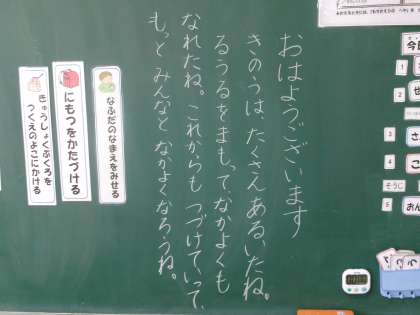 おはようございます
きのうは、たくさんあるいたね。
るうるをまもって、なかよくも
なれたね。これからもつづけていって、
もっとみんなとなかよくなろうね。
なふだのなまえをみせる
にもつをかたづける
きゅうしょくぶくろを
つくえのよこにかける
1
2
3
4
そうじ
5